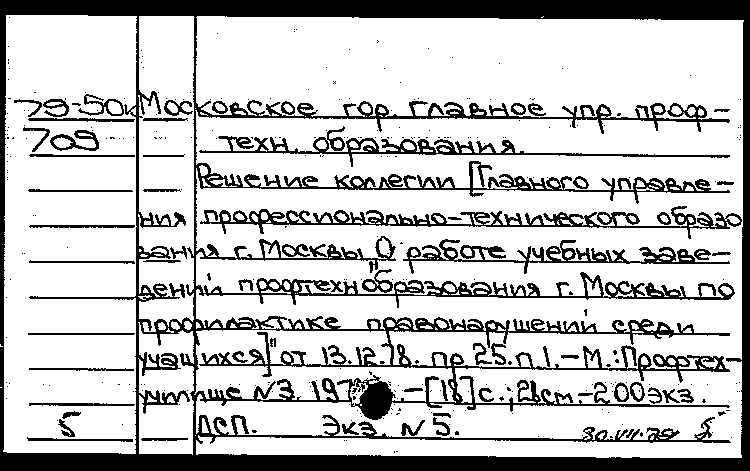 79-50к Московское гор. главное упр. проф-
709 техн. образования.
Решение коллегии [Главного управле-
ния профессионально-технического образо
вания г. Москвы „О работе учебных заве-
дений профтехнобразования г. Москвы по
профилактике правонарушений среди
учащихся]" от 13.12.78. пр. 25. п. 1. - М.: Профтех-
училище №3. - [18] с.; 21см. - 200экз.
5 ДСП. Экз. №5. 30.VII.79